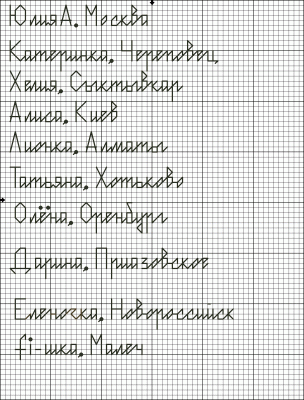 Юлия А. Москва
Катеринка, Череповец,
Хелия, Сыктывкар
Алиса, Киев
Лиочка, Алматы
Татьяна, Хотьково
Олёна, Оренбург
Дарина, Приазовское
Еленочка, Новороссийск
fi-шка, Малеч